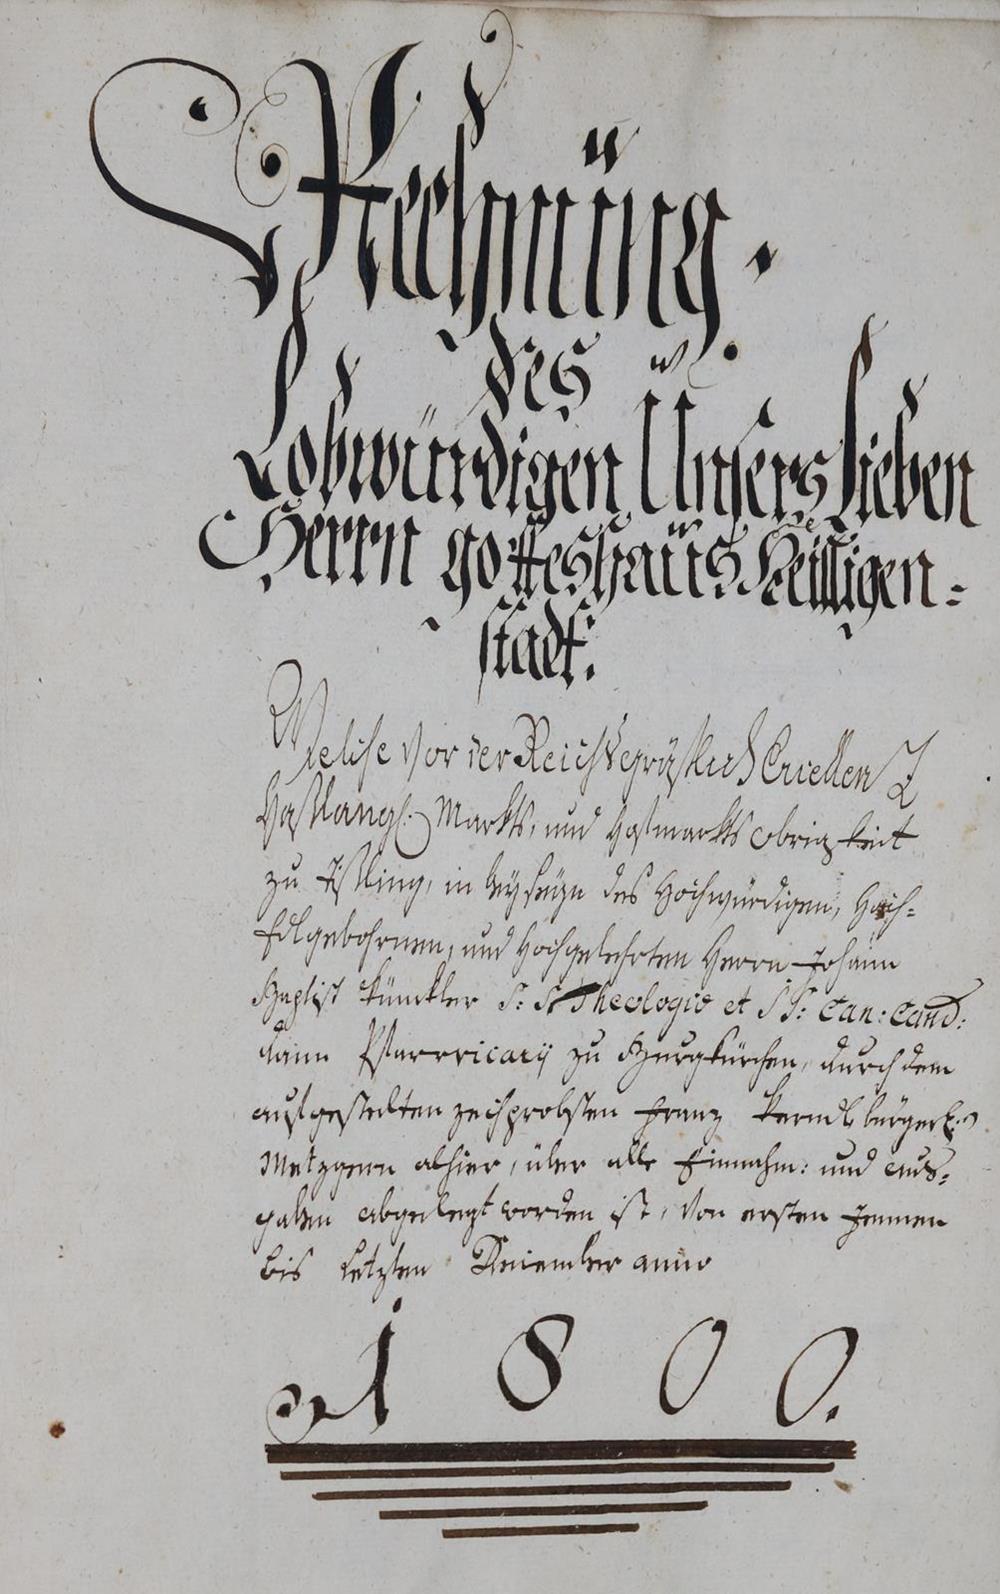 Rechnüng.
des
Lobwürdigen Unsers lieben
Herrn gotteshaüs Heilligen=
stadt.
Welche Vor der Reichsgräflich
Haßlang: Markts, und Hofmarkts obrigkeit
zu Tißling, in beyseyn des Hochwürdigen, Hoch=
Edlgebohrnen, und Hochgelehrten Herrn Johann
Baptist Künckler S: S: Theologiæ et SS: Can: Cand:
dann Pfarrvicarÿ zu Burgkürchen, durch dem
aufgestelten zechprobsten Franz bürgerl:
Metzgern alhier, über alle Einnahm: und aus=
gaben abgelegt worden ist, Von ersten Jenner
bis letzten December anno
1800.